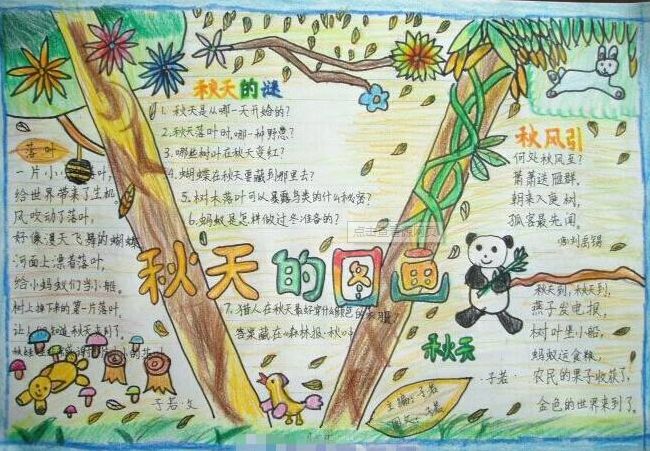 落叶
一片小小落叶,
给世界带来了生机。
风吹动了落叶,
好像漫天飞舞的蝴蝶
河面上漂着落叶,
给小蚂蚁们当小船。
树上掉下来的第一片落叶,
让人们知道秋天来到了。
子若:文
秋天的谜
1. 秋天是从哪一天开始的?
2. 秋天落叶时,哪一种野
3. 哪些树叶在秋天变红?
4. 蝴蝶在秋天里藏到哪里去?
5. 树木落叶可以暴露鸟类的什么秘密?
6. 蚂蚁是怎样做过冬准备的?
秋天的图画
7. 猎人在秋天最好穿什么颜色的衣服?
答案藏在《森林报·秋》
秋风引
何处秋风至?
萧萧送雁群。
朝来入庭树,
孤客最先闻。
唐:刘禹锡
点击查看
秋天
秋天到,秋天到,
燕子发电报,
树叶堡小船,
蚂蚁运食粮,
农民的果子收获了,
金色的世界来到了。
:子若·
主编:子若
图文:子若